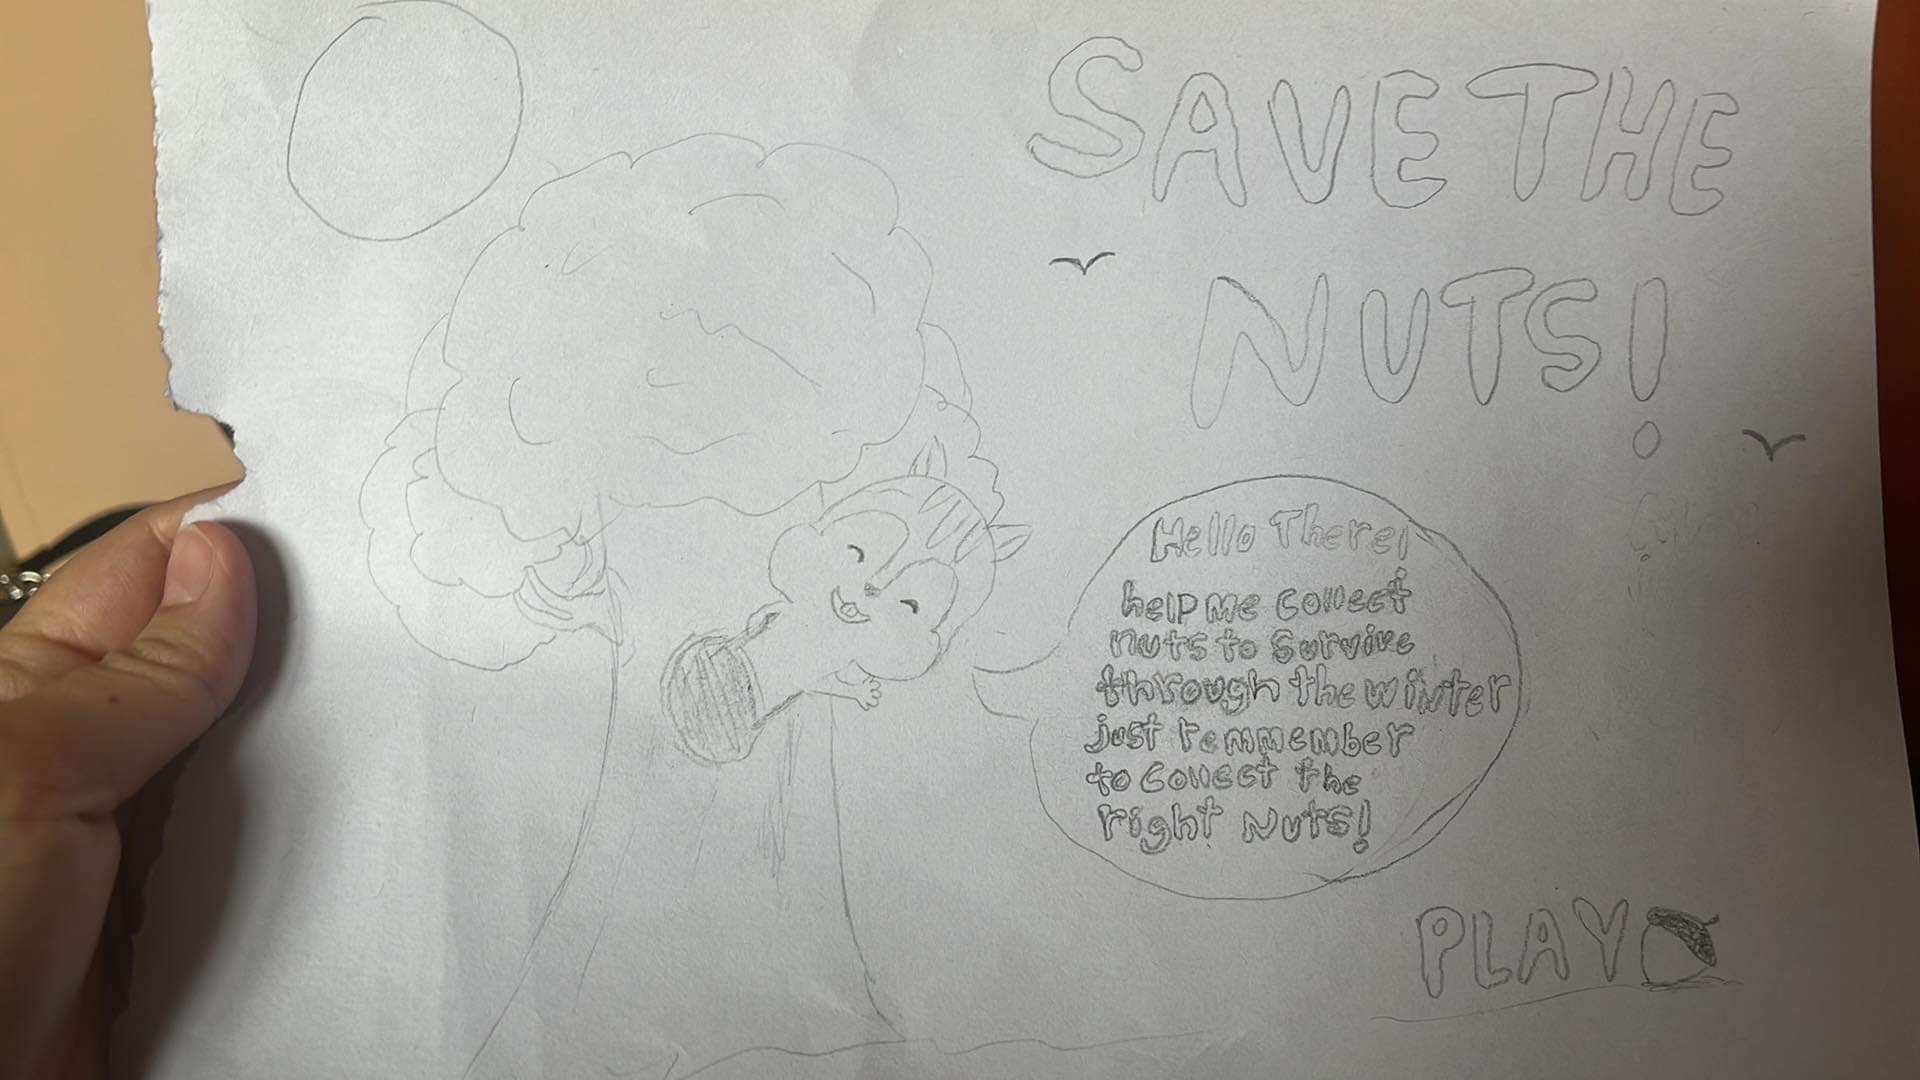 SAVE THE
NUTS!
Hello There!
help me collect
nuts to survive
through the winter
just remmember
to collect the
right Nuts!
PLAY